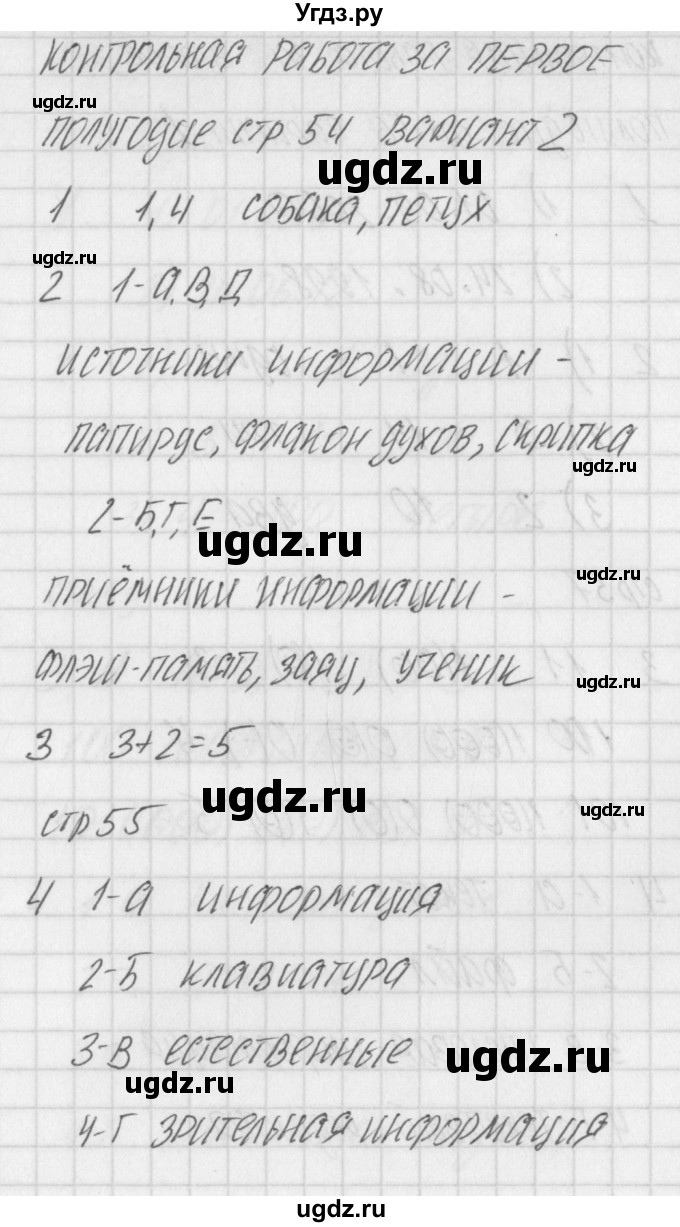 Угдз.ру
КОНТРОЛЬНАЯ РАБОТА ЗА ПЕРВОЕ
ugdz.ru
ПОЛУГОДИЕ СТР 54 ВАРИАНТ 2
ugdz.ru
1 1,4 СОБАКА, ПЕТУХ
ugdz.ru
2 1-А,В,Д
ИСТОЧНИКИ ИНФОРМАЦИИ -
ПАПИРУС, ФЛАКОН ДУХОВ, СКРИПКА
ugdz.ru
2-Б,Г,Е
ugdz.ru
ugdz.ru
ПРИЁМНИКИ ИНФОРМАЦИИ -
ФЛЭШ-ПАМЯТЬ, ЗАЯЦ, УЧЕНИК
ugdz.ru
3 3+2=5
ugdz.ru
ugdz.ru
СТР 55
4 1-А ИНФОРМАЦИЯ
2-Б КЛАВИАТУРА
3-В ЕСТЕСТВЕННЫЕ
ugdz.ru
ugdz.ru
4-Г ЗРИТЕЛЬНАЯ ИНФОРМАЦИЯ
ugdz.ru